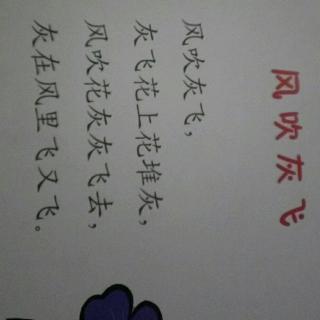 风吹灰飞
风吹灰飞，
灰飞花上花堆灰，
风吹花灰灰飞去，
灰在风里飞又飞。